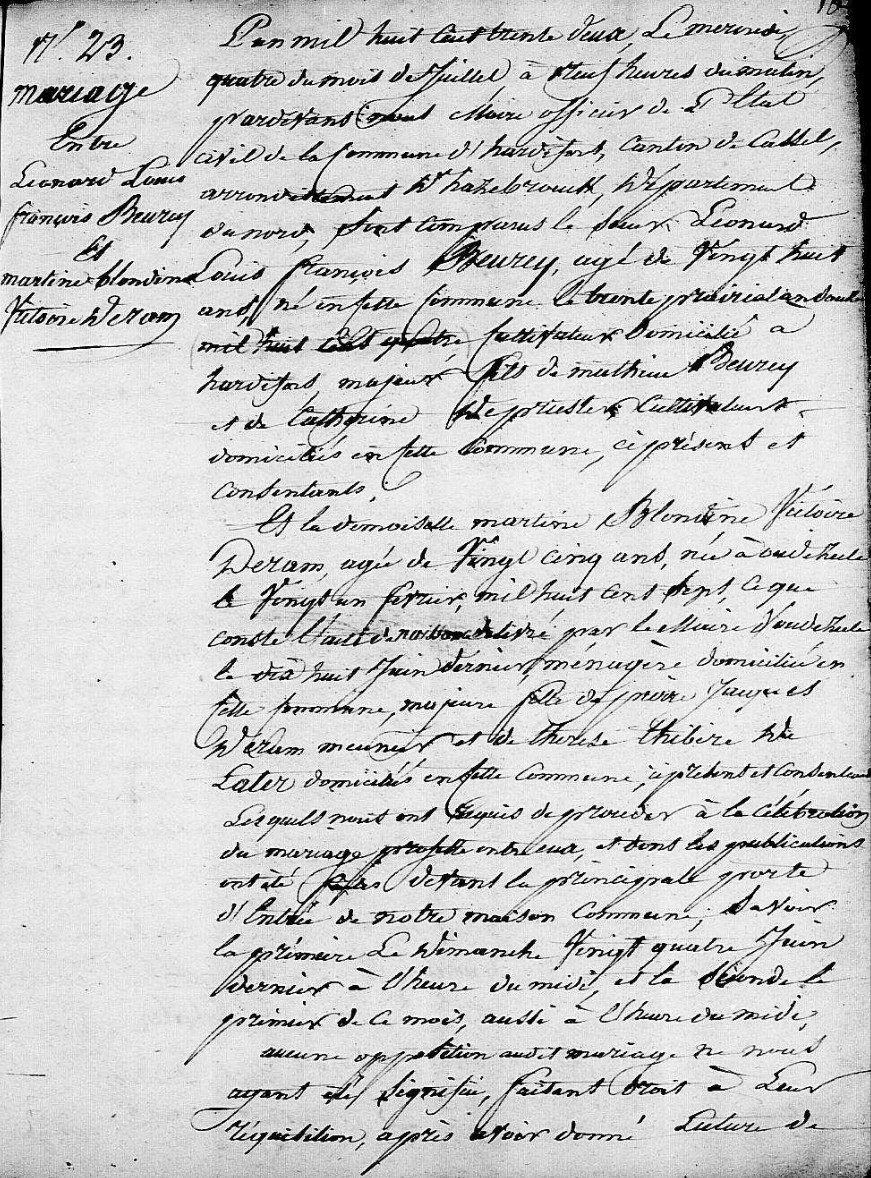 N.° 23.
mariage
Entre
Léonard Louis
françois Beurey
Et
martine blondine
Victoire Deram
L'an mil huit cent trente deux, Le mercredi
quatre du mois de Juillet à neuf heures du matin,
pardevant nous Maire officier de L'Etat
civil de la Commune d'hardifort, Canton de Cassel,
arrondissement d'hazebrouck, Département
du nord, sont comparus le sieur Léonard
Louis françois Beurey, agé de Vingt huit
ans, né en cette Commune le trente prairial an douze
mil huit cent quatre, Cultivateur Domicilié à
hardifort, majeur fils de mathieu Beurey
et de Catherine De priester Cultivateurs
domiciliés en cette Commune, ci présens et
consentants.
Et la demoiselle martine Blondine Victoire
Deram, agée de Vingt cinq ans, née à oudezeele
le Vingt un fevrier, mil huit cent sept, ce que
conste l'acte de naissance delivré par le Maire d'oudezeele
le dix huit Juin dernier, ménagère domiciliée en
cette commune, majeure fille de pierre Jacques
Deram meunier et de therese
Later domiciliés en cette Commune, ci présent et consentans
Lesquels nous ont requis de proceder à la célébration
du mariage projetté entre eux, et dont les publications
ont été faites devant la principale porte
d'Entrée de notre maison Commune; Savoir
la prémiere Le Dimanche Vingt quatre Juin
dernier à l'heure du midi, et la seconde le
primier de ce mois, aussi à l'heure du midi,
aucune opposition audit mariage ne nous
ayant été signifiée, faisant droit à Leur
réquisition, après avoir donné Lecture de